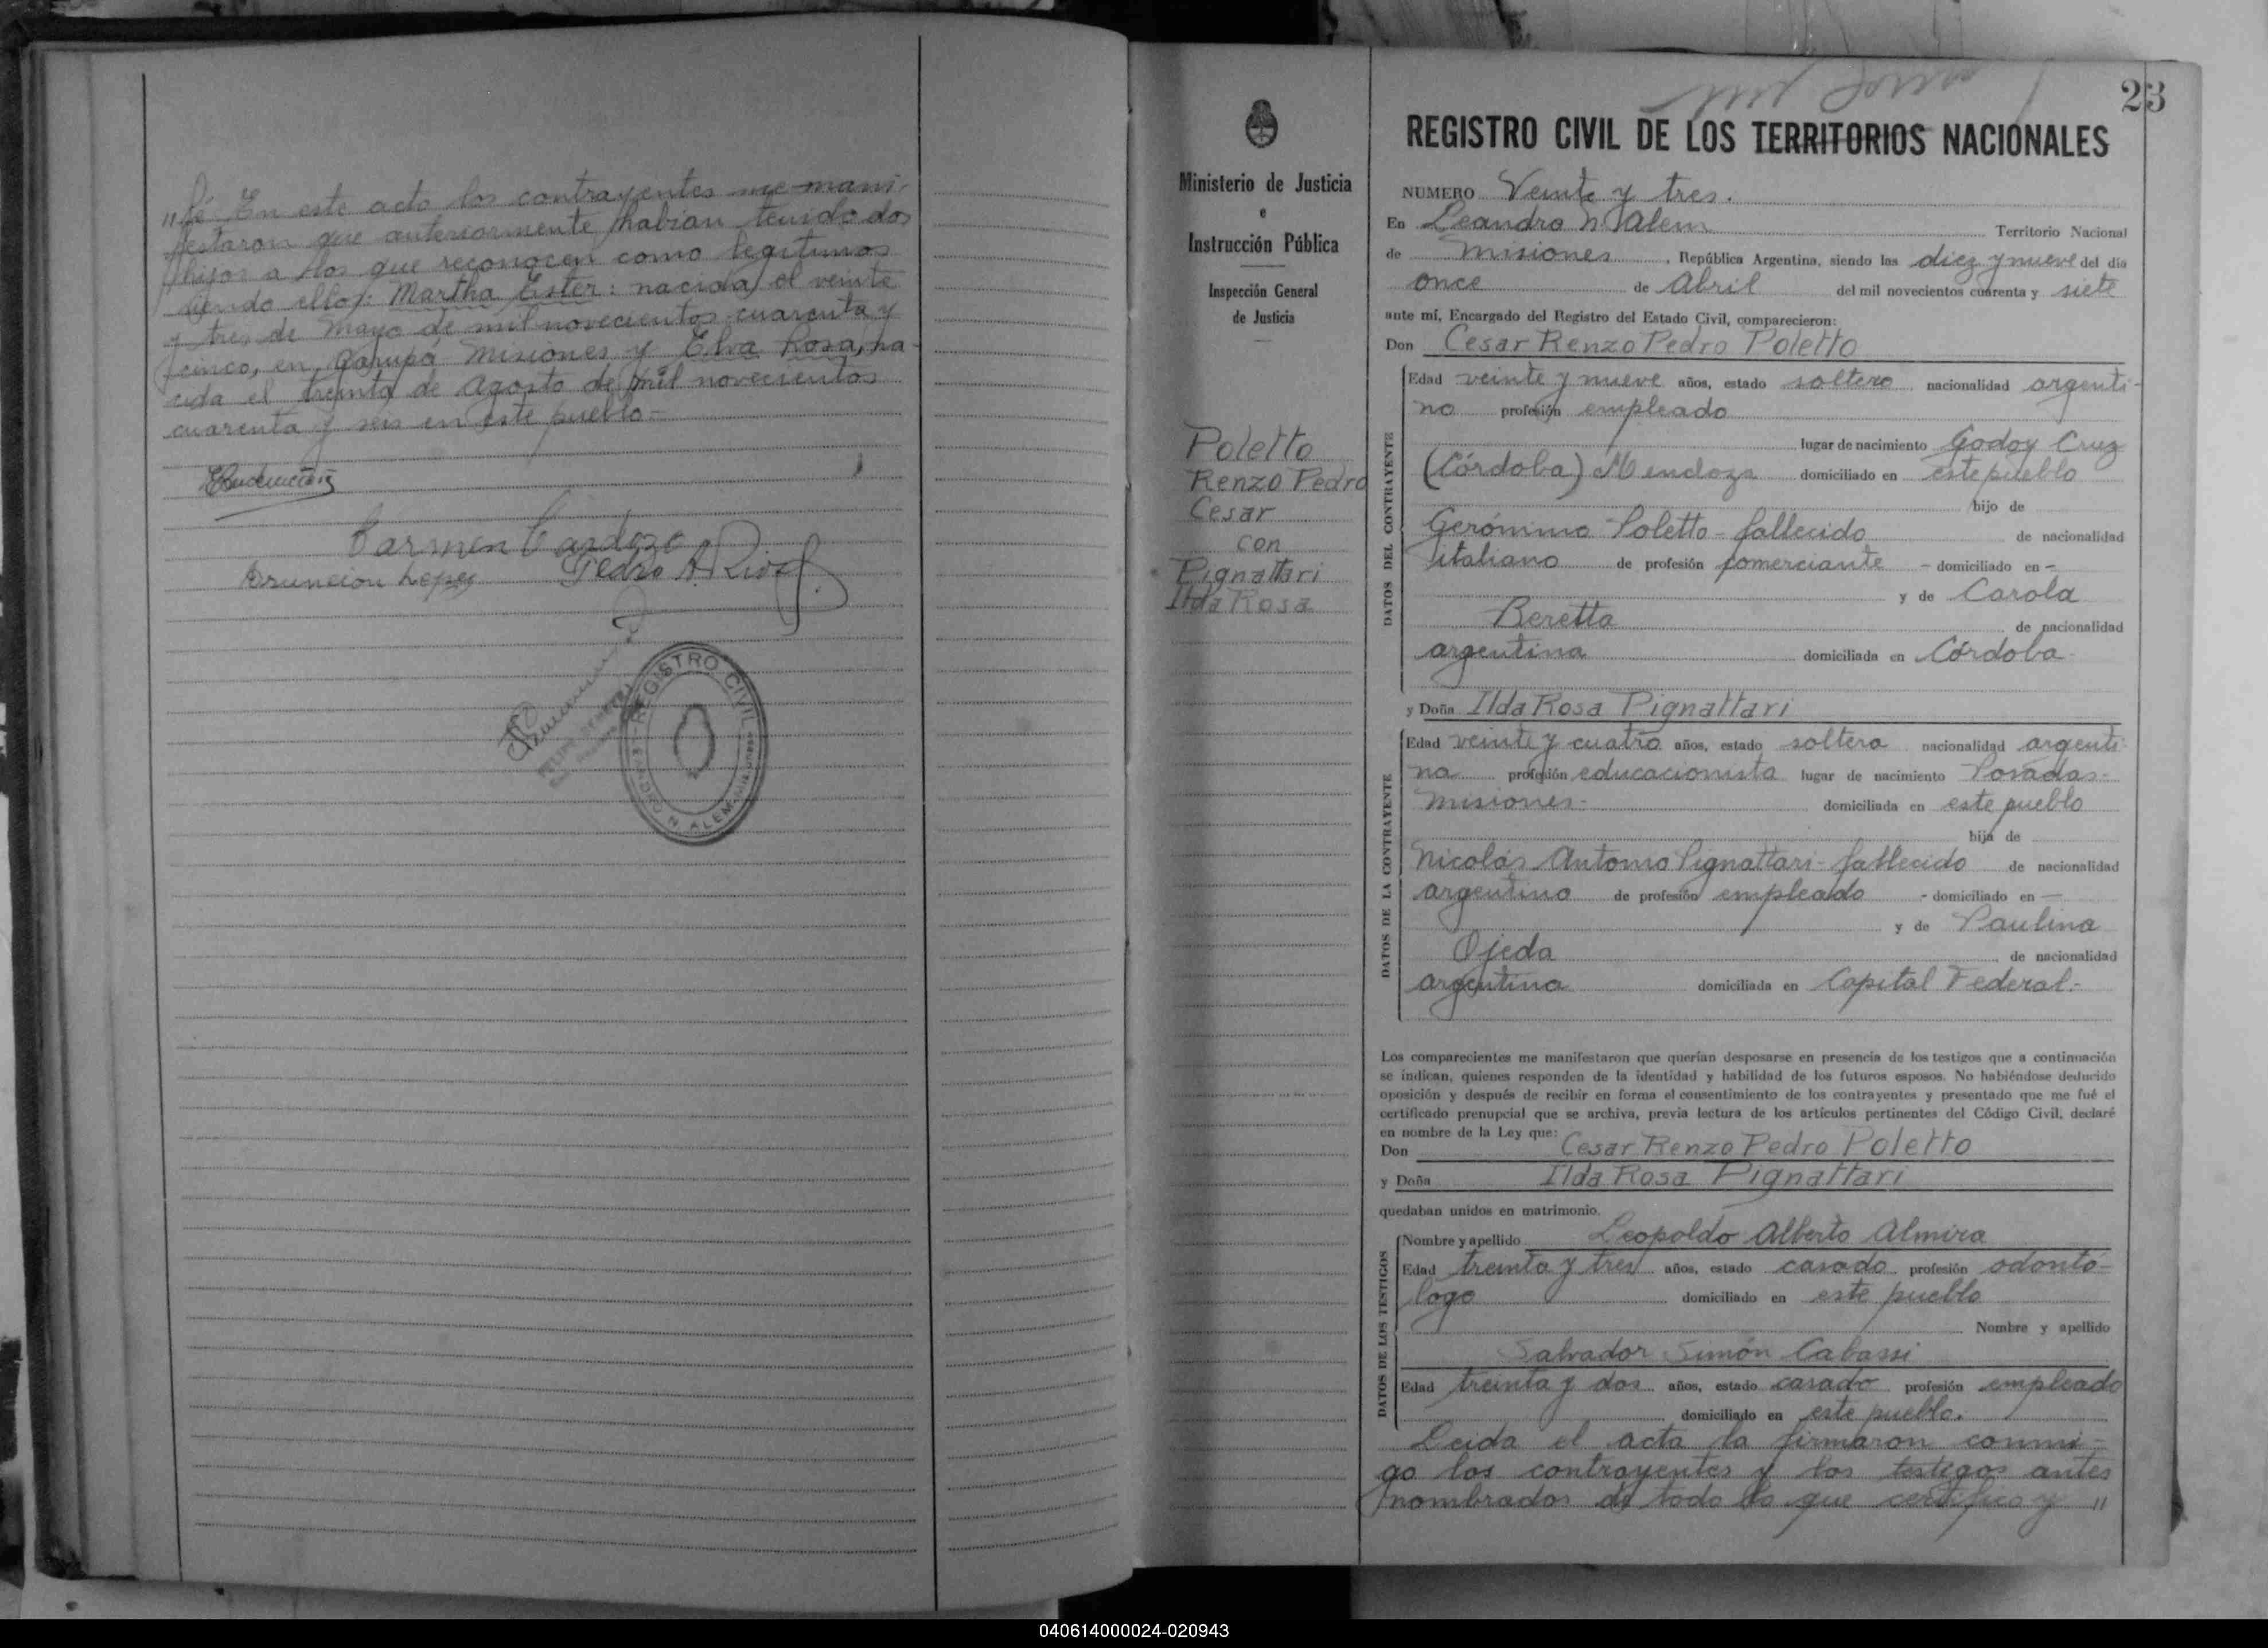 "fé. En este acto los contrayentes me mani-
festaron que anteriormente habian tenido dos
hijos a los que reconocen como legitimos
siendo ellos: Martha Ester: nacida el veinte
y tres de Mayo de mil novecientos cuarenta y
cinco, en Garupá Misiones y Elva Rosa, na-
cida el treinta de Agosto de mil novecientos
cuarenta y seis en este pueblo-
Carmen Cardozo
Asuncion Lopez Pedro A. Rios
REGISTRO CIVIL
LEANDRO N. ALEM
Ministerio de Justicia
e
Instrucción Pública
Inspección General
de Justicia
Poletto
Renzo Pedro
Cesar
con
Pignattari
Ilda Rosa
23
REGISTRO CIVIL DE LOS TERRITORIOS NACIONALES
NUMERO Veinte y tres.
En Leandro N Alem Territorio Nacional
de Misiones, República Argentina, siendo las diez y nueve del día
once de Abril del mil novecientos cuarenta y siete
ante mí, Encargado del Registro del Estado Civil, comparecieron:
Don Cesar Renzo Pedro Poletto
DATOS DEL CONTRAYENTE
Edad veinte y nueve años, estado soltero nacionalidad argenti-
no profesión empleado
lugar de nacimiento Godoy Cruz
(Córdoba) Mendoza domiciliado en este pueblo
hijo de
Gerónimo Poletto - fallecido de nacionalidad
italiano de profesión comerciante - domiciliado en -
y de Carola
Beretta de nacionalidad
argentina domiciliada en Córdoba-
y Doña Ilda Rosa Pignattari
DATOS DE LA CONTRAYENTE
Edad veinte y cuatro años, estado soltera nacionalidad argenti-
na profesión educacionista lugar de nacimiento Posadas-
Misiones- domiciliada en este pueblo
hija de
Nicolás Antonio Pignattari - fallecido de nacionalidad
argentino de profesión empleado - domiciliado en -
y de Paulina
Ojeda de nacionalidad
argentina domiciliada en Capital Federal.-
Los comparecientes me manifestaron que querían desposarse en presencia de los testigos que a continuación
se indican, quienes responden de la identidad y habilidad de los futuros esposos. No habiéndose deducido
oposición y después de recibir en forma el consentimiento de los contrayentes y presentado que me fué el
certificado prenupcial que se archiva, previa lectura de los artículos pertinentes del Código Civil, declaré
en nombre de la Ley que:
Don Cesar Renzo Pedro Poletto
y Doña Ilda Rosa Pignattari
quedaban unidos en matrimonio.
DATOS DE LOS TESTIGOS
Nombre y apellido Leopoldo Alberto Almira
Edad treinta y tres años, estado casado profesión odontó-
logo domiciliado en este pueblo
Nombre y apellido
Salvador Simón Cabassi
Edad treinta y dos años, estado casado profesión empleado
domiciliado en este pueblo.
Leida el acta la firmaron conmi-
go los contrayentes y los testigos antes
nombrados de todo lo que certifico y "
040614000024-020943